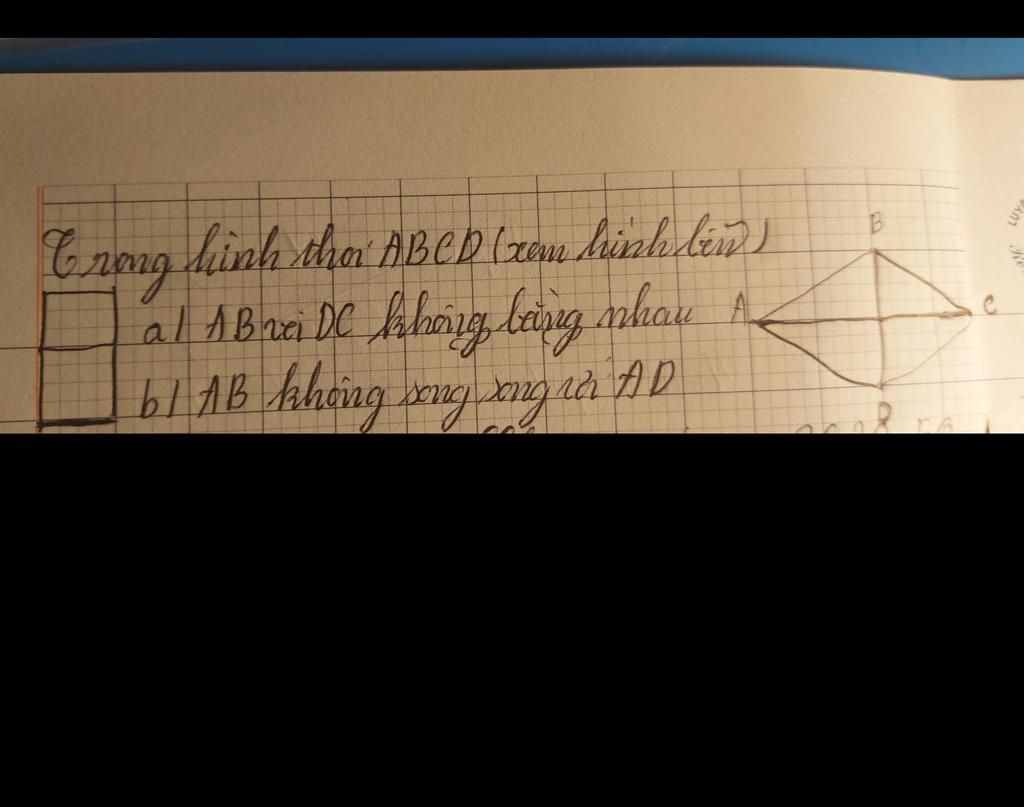 Trong hình thoi ABCD (xem hình bên)
a) AB và DC không bằng nhau
b) AB không song song với AD
B
A
C
D